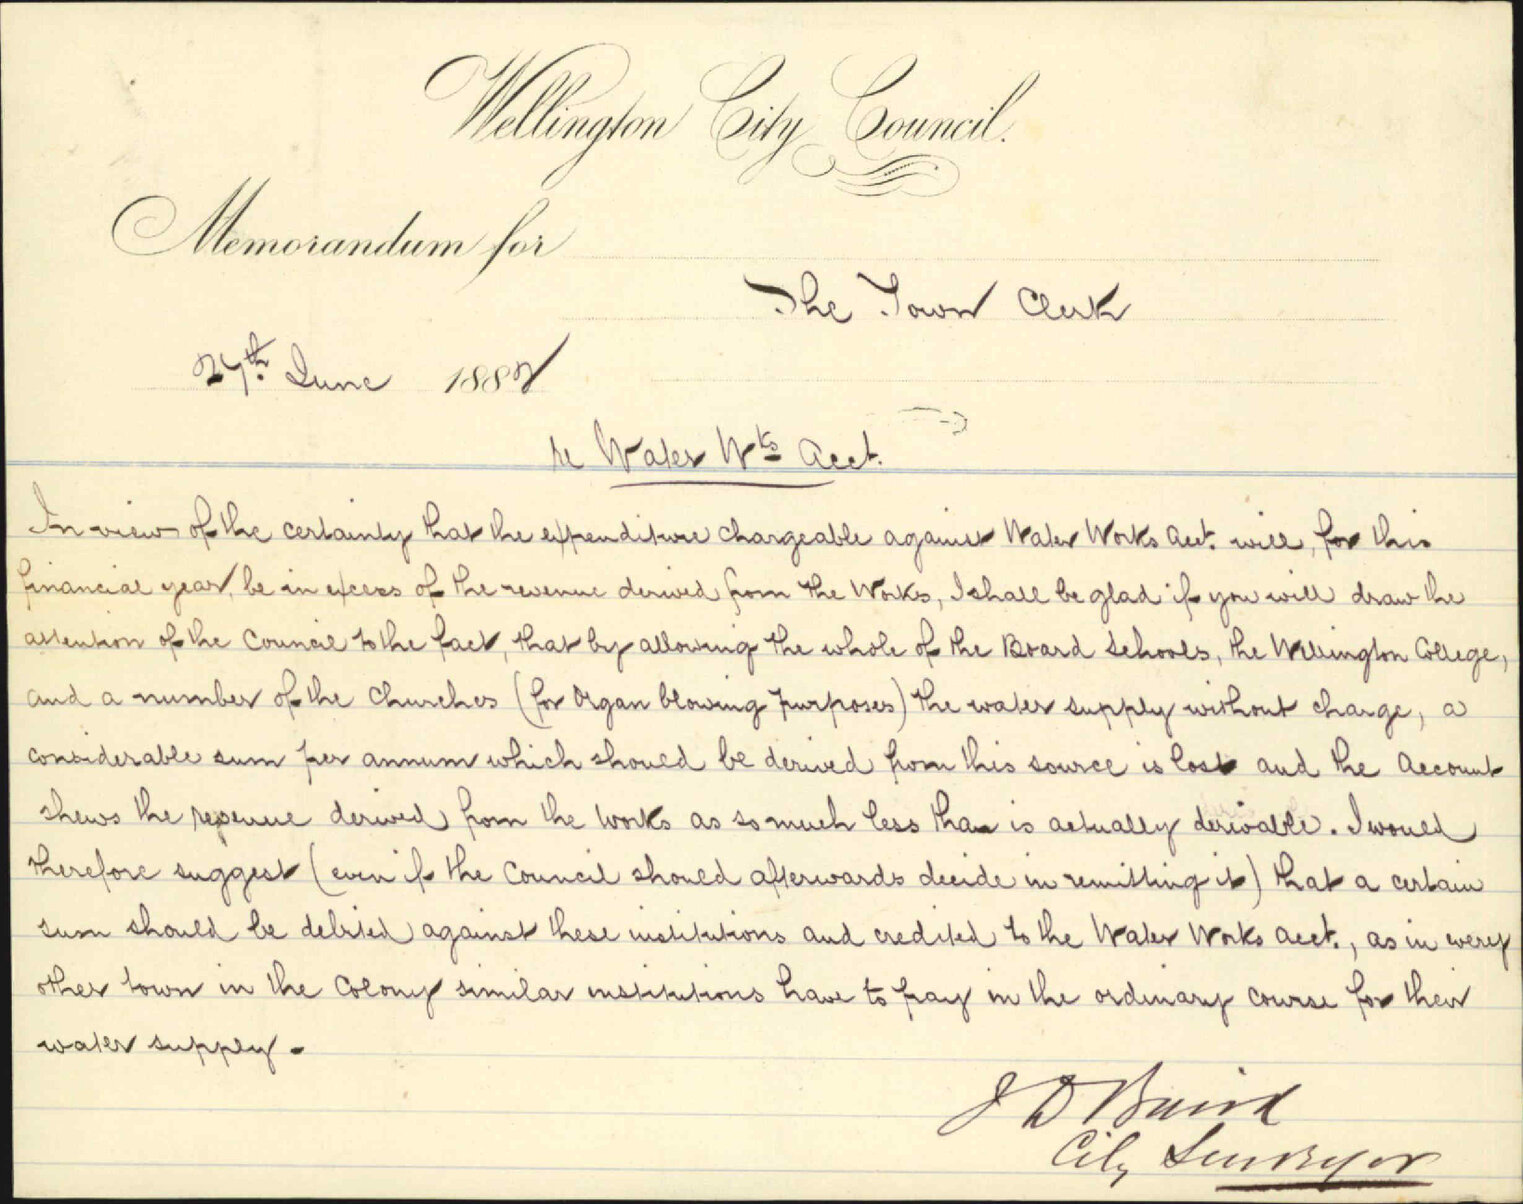 Wellington City Council.
Memorandum for
The Town Clerk
27th June 1882
re Water Wks Acct.
In view of the certainty that the expenditure chargeable against Water Works Acct. will, for this
financial year, be in excess of the revenue derived from the Works, I shall be glad if you will draw the
attention of the Council to the fact, that by allowing the whole of the Board Schools, the Wellington College,
and a number of the Churches (for Organ blowing purposes) the water supply without charge, a
considerable sum per annum which should be derived from this source is lost and the Account
shews the revenue derived from the Works as so much less than is actually derivable. I would
therefore suggest (even if the Council should afterwards decide in remitting it) that a certain
sum should be debited against these institutions and credited to the Water Works Acct., as in every
other town in the Colony similar institutions have to pay in the ordinary course for their
water supply.
J D Baird
City Surveyor